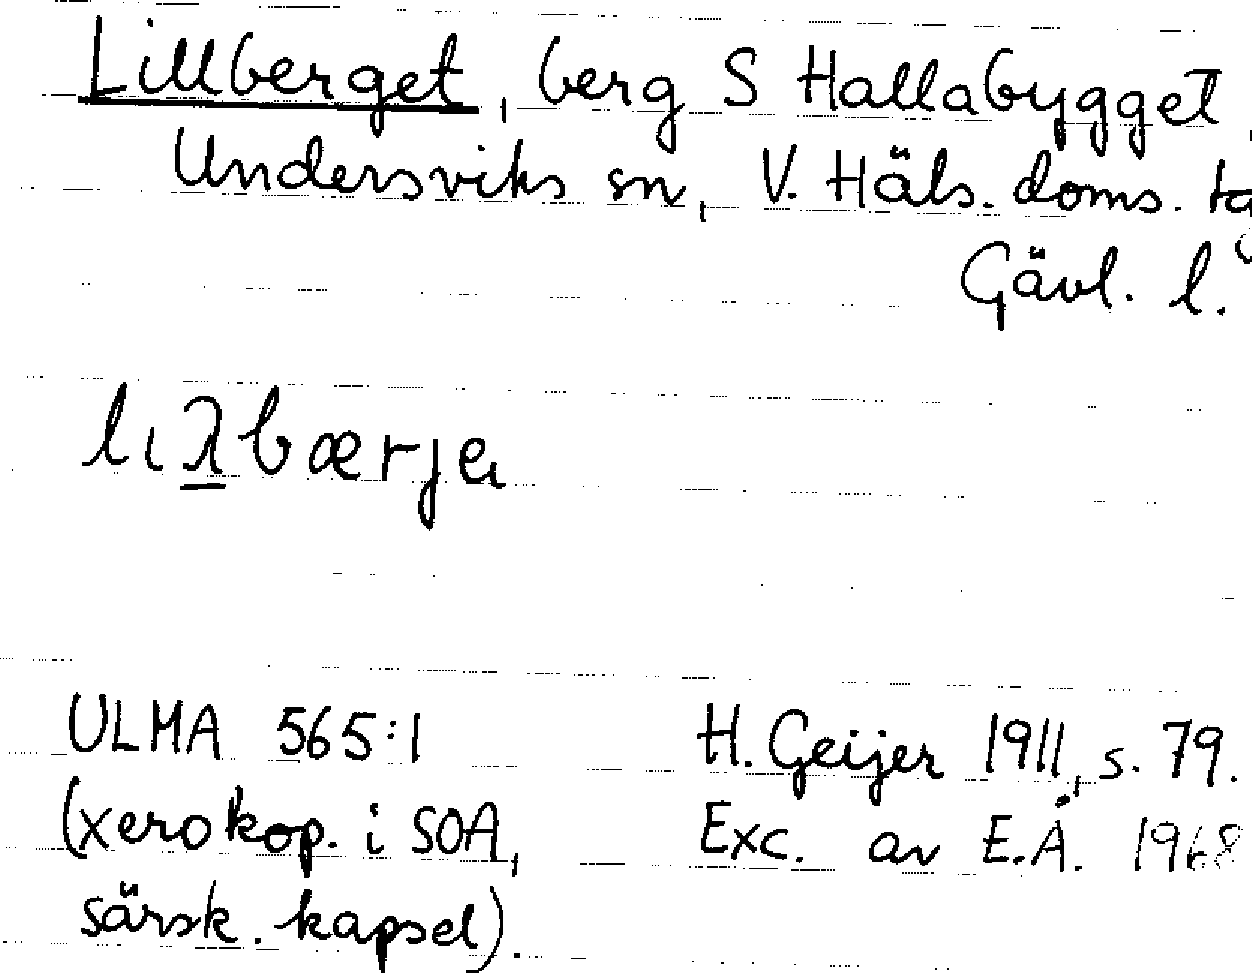 Lillberget, berg S Hallabygget,
Undersviks sn, V. Häls. doms. tg
Gävl. l.
lιλbærjeι
ULMA 565:1
H. Geijer 1911, s. 79.
(xerokop. i SOA,
Exc. av E.Å. 1968
särsk. kapsel).